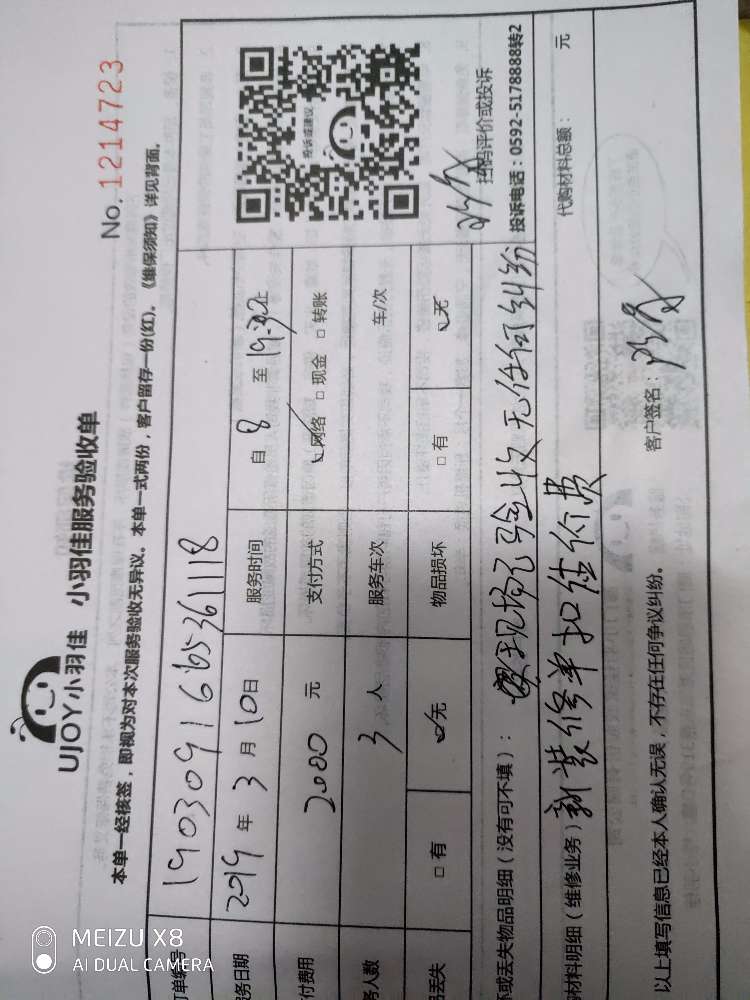 UJOY小羽佳 小羽佳服务验收单
No. 1214723
本单一经核签，即视为对本次服务验收无异议。本单一式两份，客户留存一份(红)。《维保须知》详见背面。
订单编号 1903091665361118
务日期 2019 年 3 月 10 日 服务时间 自 8 至 19 止
付费用 2000 元 支付方式 ☑网络 □现金 □转账
务人数 3 人 服务车次 车/次
品丢失 □有 ☑无 物品损坏 □有 ☑无
投诉或建议
扫码评价或投诉
投诉电话：0592-5178888转2
坏或丢失物品明细（没有可不填）： 现场已验收无任何纠纷
材料明细（维修业务） 新装修单扣住价费
代购材料总额： 元
以上填写信息已经本人确认无误，不存在任何争议纠纷。 客户签名：
MEIZU X8
AI DUAL CAMERA